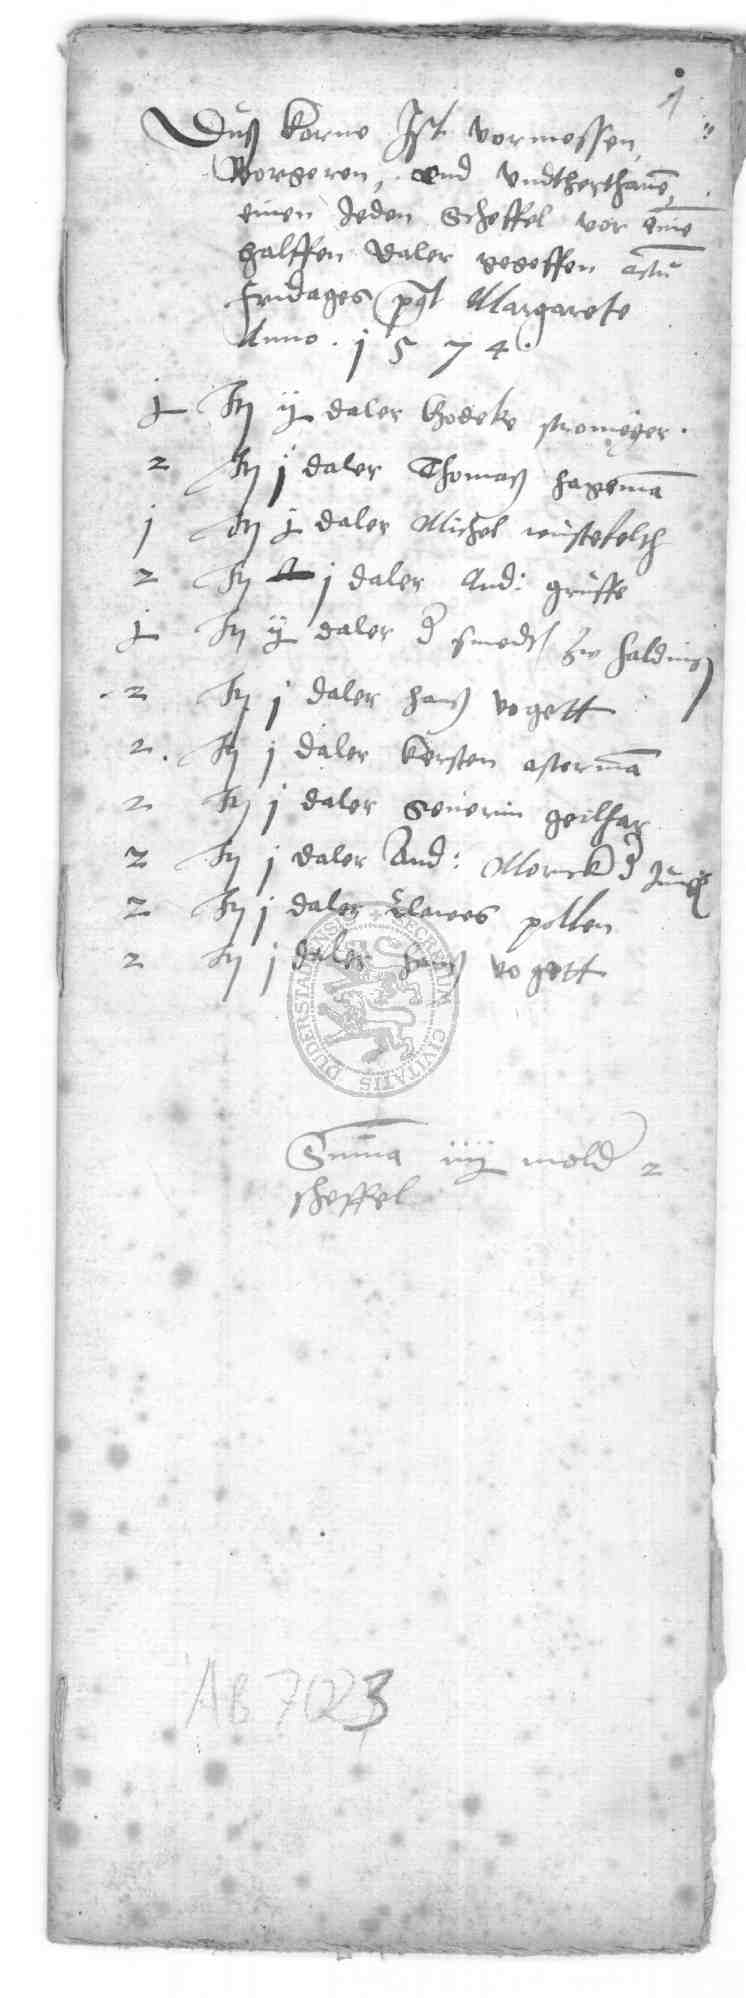 1
Duß korne Ist vormessen,
Borgeren, vnd vndtherthanē,
einen Jeden Scheffel vor einē
halffen daler gegeffen actū
fridages pꝰt Margarete
Anno . 1 5 7 4 .
j daler Godeke stromeyer .
2 j daler Thomaß hageman̄
j j daler Michel wustefelth
2 j daler And: gruffe
ij daler smedß
2 j daler hanß vogett
2 . j daler kersten asterman̄
2 j daler Seuerin geilhar
2 j daler And: Morick Junge
2 j daler Clawes pollen
2 j daler hanß vogett
SECRETUM CIVITATIS DUDERSTADENSIS
Sum̄a iiij mold 2
scheffel
AB 7023